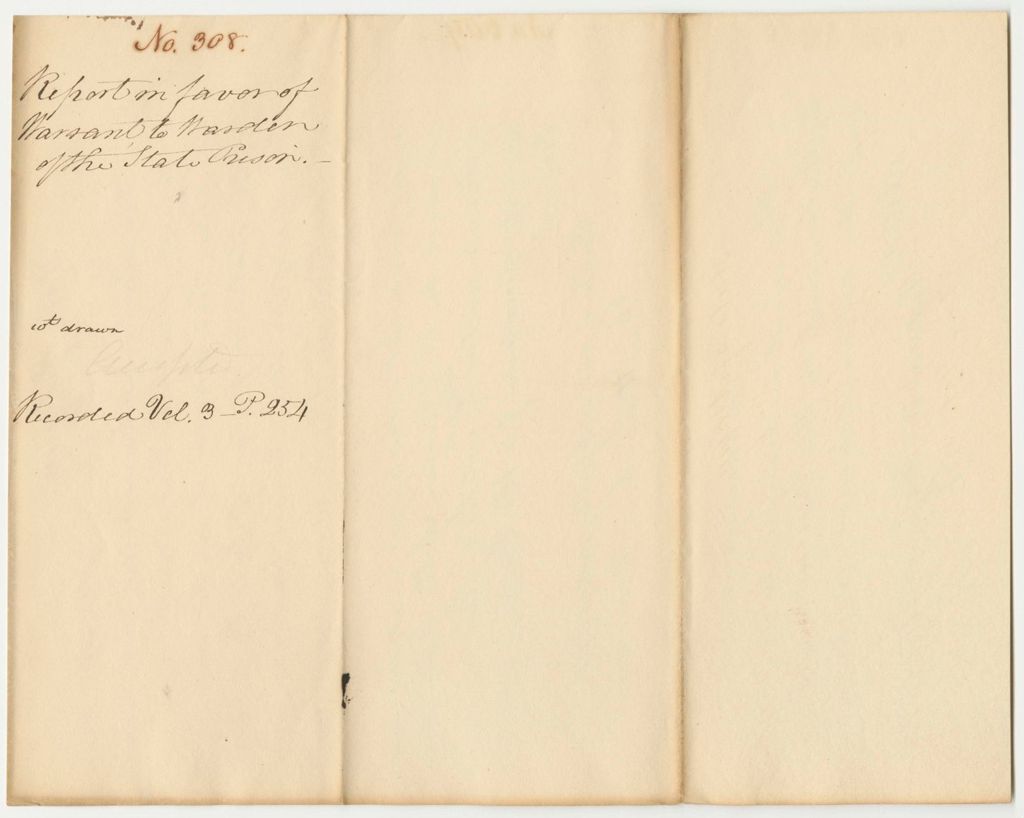 No. 308.
Report in favor of
Warrant to Warden
of the State Prison. —
wt drawn
Accepted
Recorded Vol. 3 – P. 254